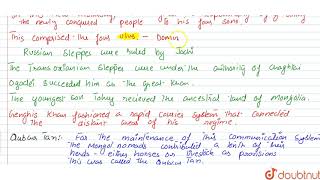 the newly conquered people to his four sons.
This comprised the four ulus - Domin
Russian Steppes were ruled by Jochi
The Transoxianian Steppes were under the authority of Chaghtai
Ogodei succeeded him as the great Khan.
The youngest son Toluy recieved the ancestral land of mongolia.
Genghis Khan fashioned a rapid courier system that connected
the distant areas of his regime.
Qubcur Tax:- For the maintenance of this communication system
the Mongol nomads contributed a tenth of their
herds - either horses or livestock as provisions
This was called the Qubcur tax.
doubtnut